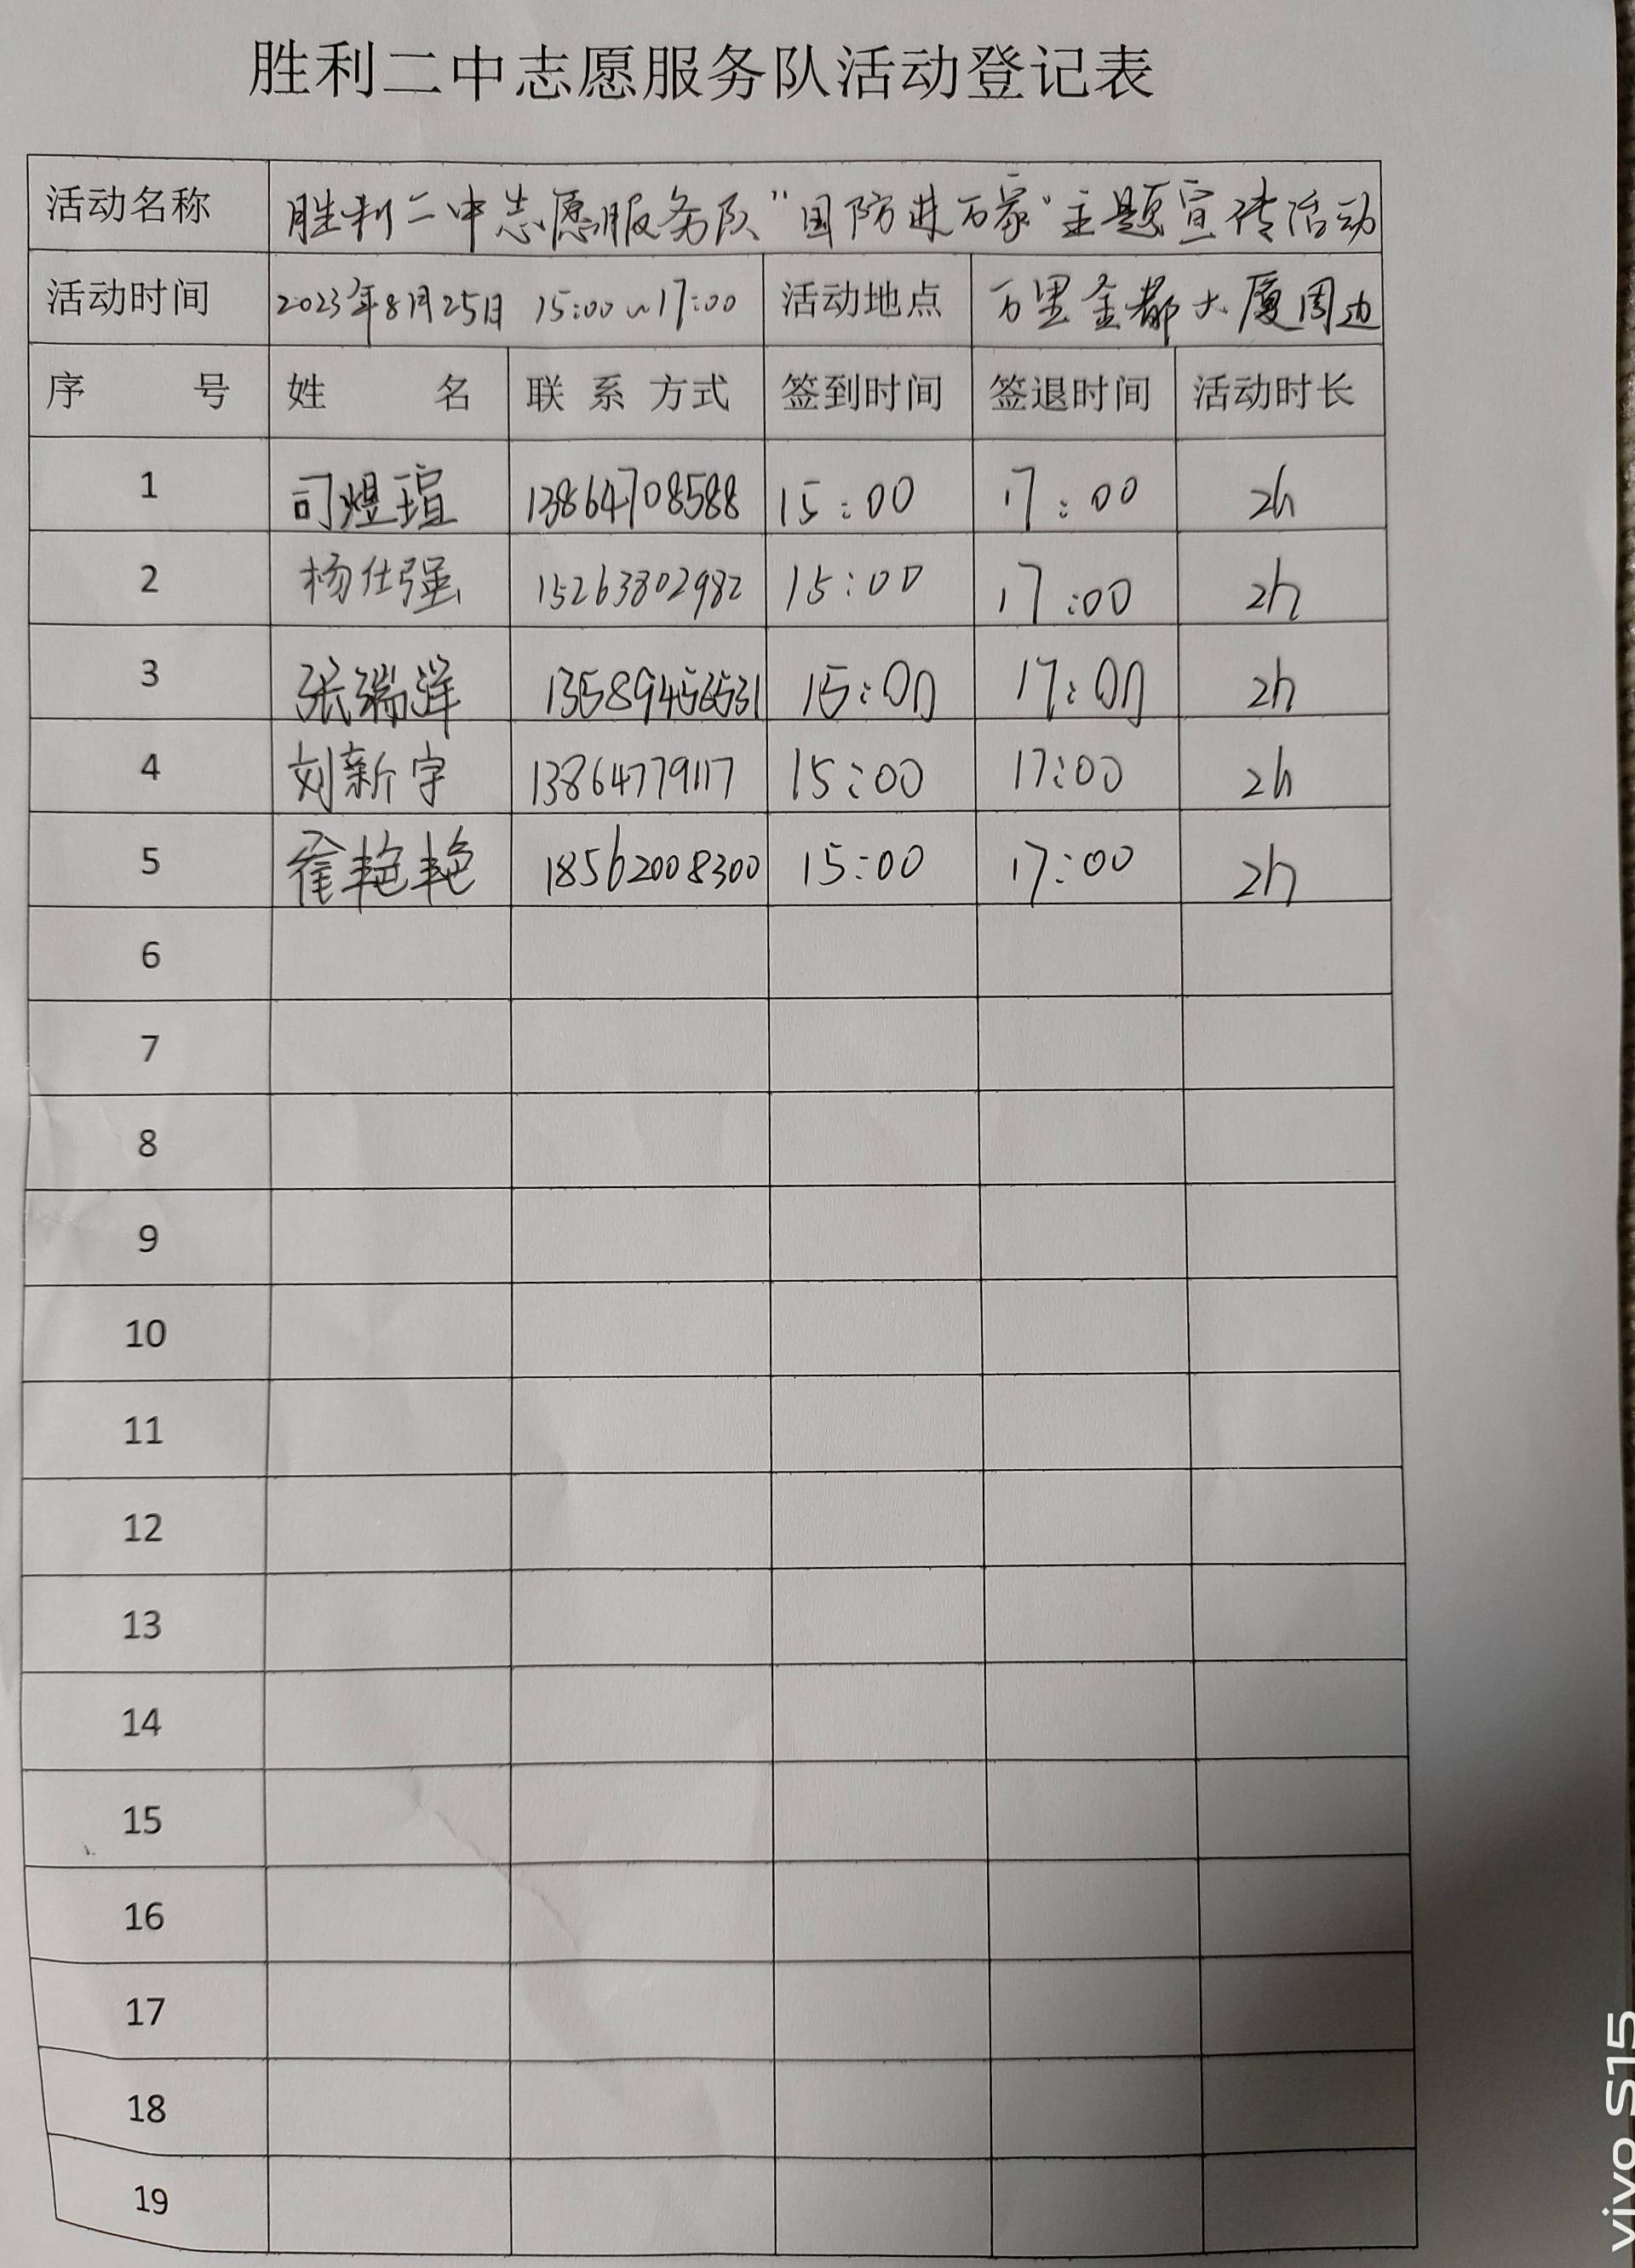 胜利二中志愿服务队活动登记表
活动名称 胜利二中志愿服务队“国防进万家”主题宣传活动
活动时间 2023年8月25日 15:00~17:00 活动地点 万里金都大厦周边
序 号 姓 名 联 系 方式 签到时间 签退时间 活动时长
1 司煜瑄 13864708588 15:00 17:00 2h
2 杨仕强 15263802982 15:00 17:00 2h
3 张瑞洋 13589456531 15:00 17:00 2h
4 刘新宇 13864779117 15:00 17:00 2h
5 崔艳艳 18562008300 15:00 17:00 2h
6
7
8
9
10
11
12
13
14
15
16
17
18
19
vivo S15